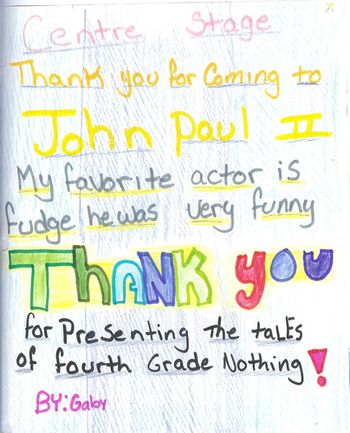 Centre Stage
Thank you for Coming to
John Paul II
My favorite actor is
fudge he was very funny
THANK you
for Presenting the talEs
of fourth Grade Nothing!
BY: Gaby